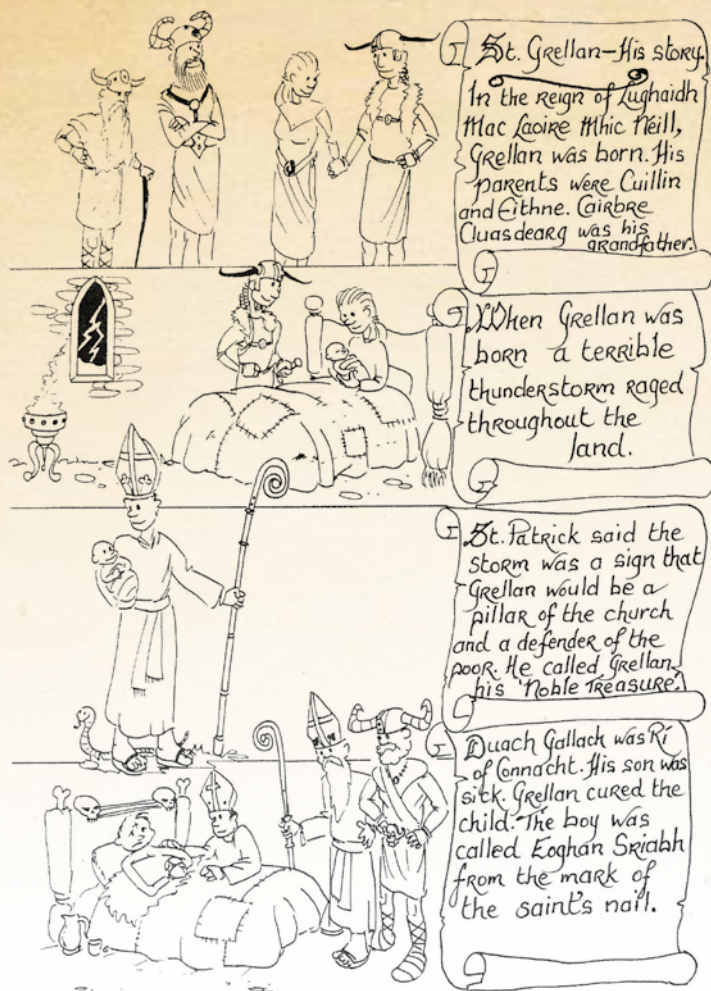 St. Grellan-His story.
In the reign of Lughaidh
Mac Laoire Mhic Neill,
Grellan was born. His
parents were Cuillin
and Eithne. Cairbre
Cluasdearg was his
grandfather.
When Grellan was
born a terrible
thunderstorm raged
throughout the
land.
St. Patrick said the
storm was a sign that
Grellan would be a
pillar of the church
and a defender of the
poor. He called Grellan
his 'Noble Treasure'.
Duach Gallach was Rí
of Connacht. His son was
sick. Grellan cured the
child. The boy was
called Eoghan Sriabh
from the mark of
the saint's nail.